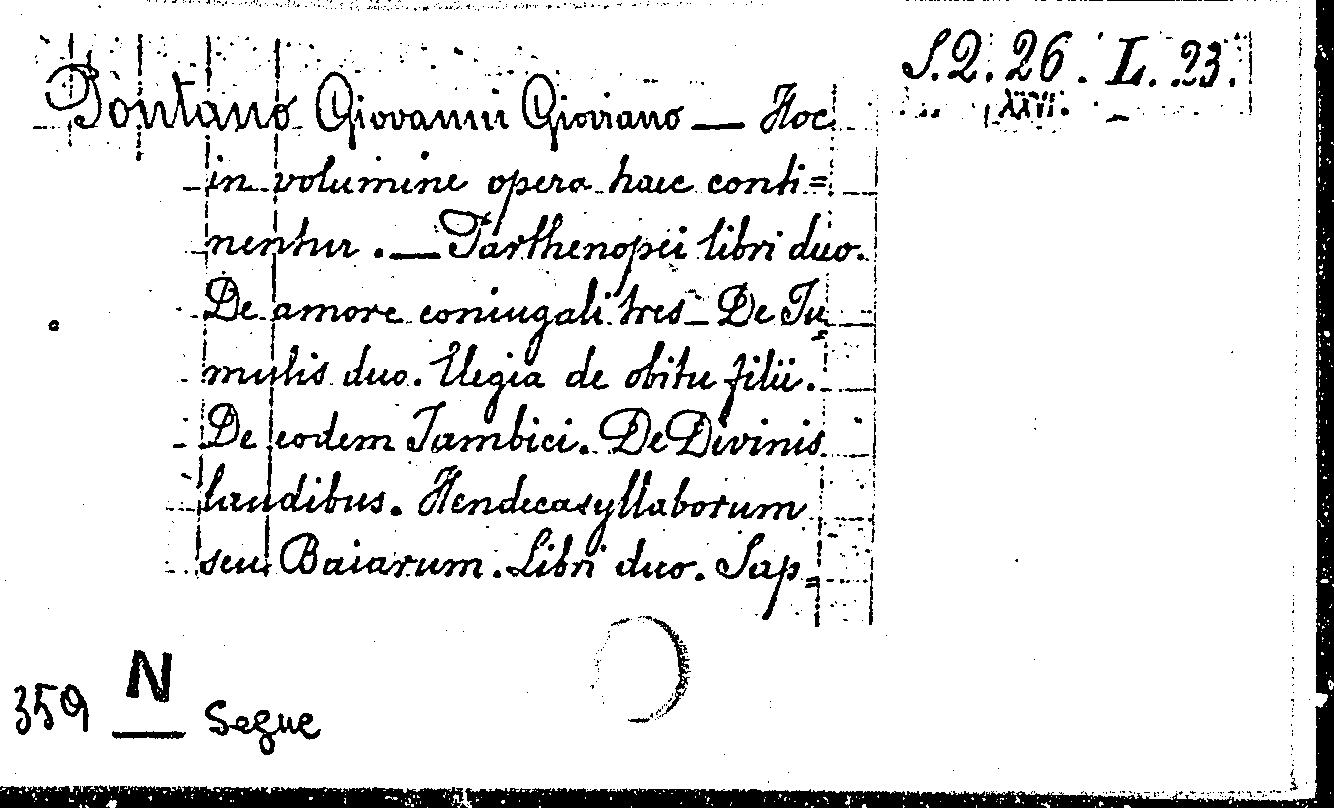 S.2. 26. L. 23.
XXVI.
Pontano Giovanni Gioviano — Hoc
in volumine opera haec conti=
nentur. — Parthenopei libri duo.
De amore coniugali tres — De Tu
mulis duo. Elegia de obitu filii.
De eodem Iambici. De Divinis
laudibus. Hendecasyllaborum
seu Baiarum. Libri duo. Sap=
359 N Segue